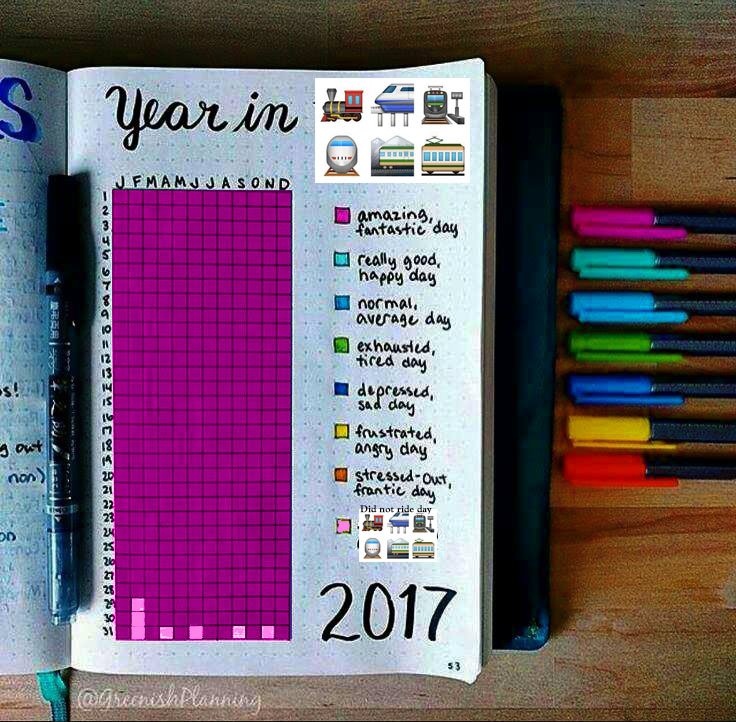 s
Year in
J F M A M J J A S O N D
1
2
3
4
5
6
7
8
9
10
11
12
13
14
15
16
17
18
19
20
21
22
23
24
25
26
27
28
29
30
31
amazing,
fantastic day
really good,
happy day
normal,
average day
exhausted,
tired day
depressed,
sad day
frustrated,
angry day
stressed-out,
frantic day
Did not ride day
2017
53
s!
g out
non)
on
@GreenishPlanning